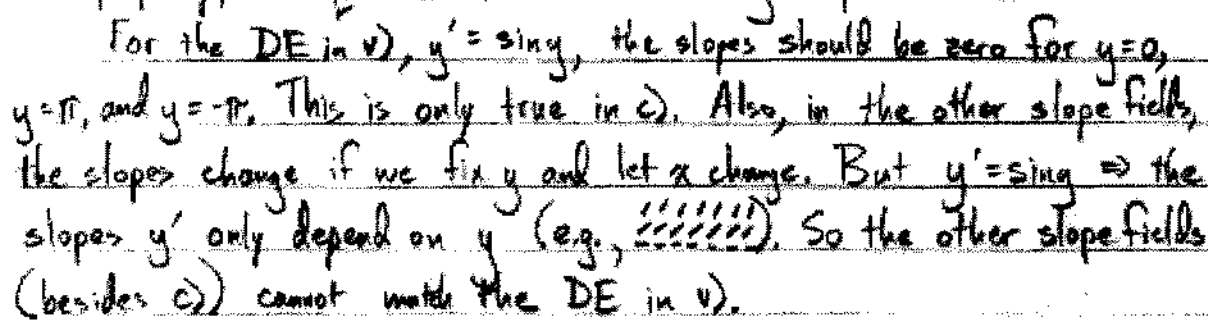 For the DE in v), y' = sin y, the slopes should be zero for y=0,
y=π, and y=-π. This is only true in c). Also, in the other slope fields,
the slopes change if we fix y and let x change. But y'=sin y ⇒ the
slopes y' only depend on y (e.g., ). So the other slope fields
(besides c)) cannot match the DE in v).